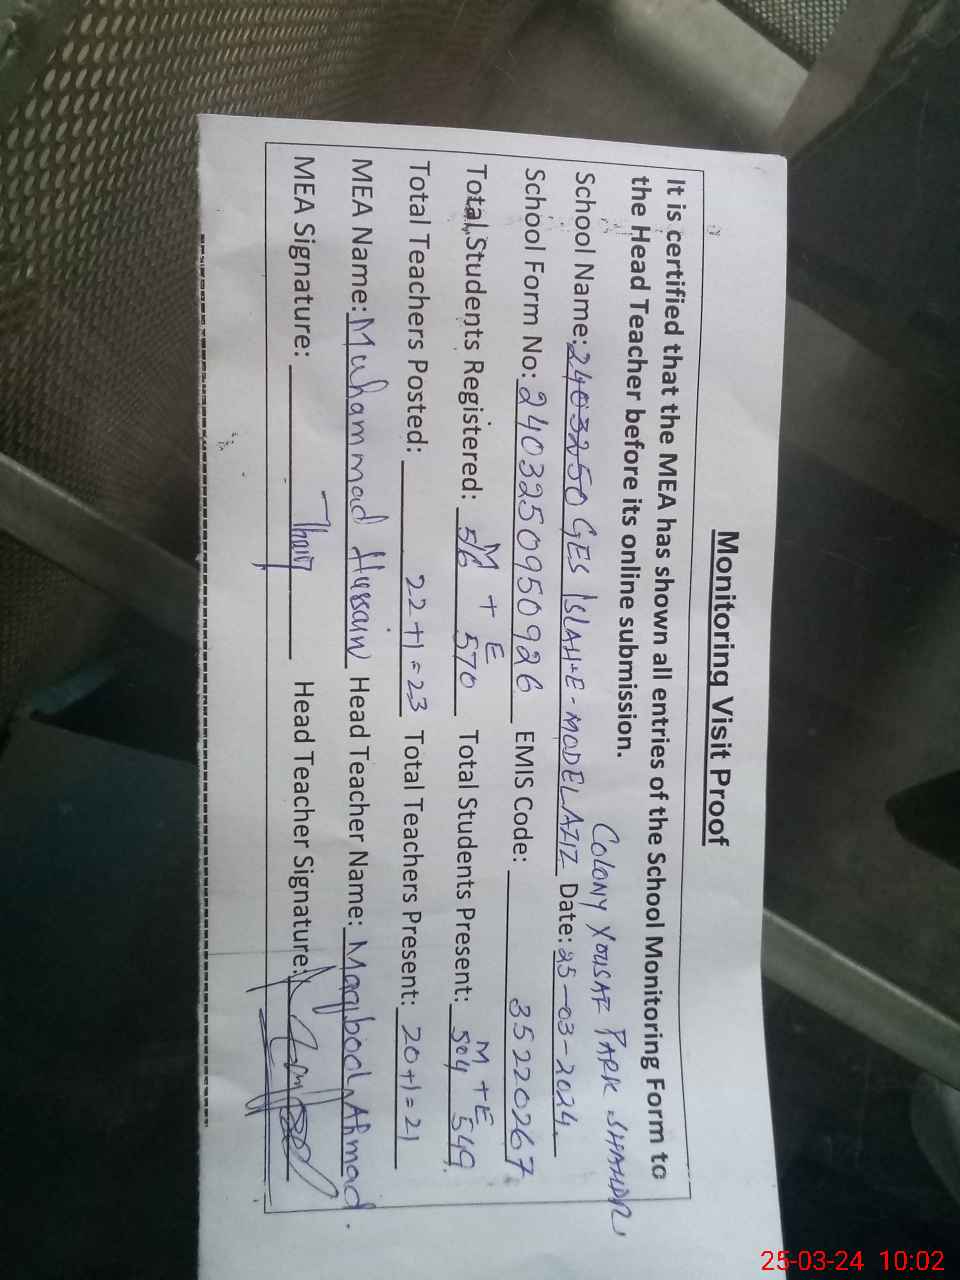 Monitoring Visit Proof
It is certified that the MEA has shown all entries of the School Monitoring Form to
the Head Teacher before its online submission.
COLONY YOUSAF PARK SHAHDR
School Name: 2403250 GES ISLAH-E-MODEL AZIZ Date: 25-03-2024
School Form No: 2403250950926 EMIS Code: 35220267
M E M + E
Total Students Registered: 56 + 570 Total Students Present: 504 549
Total Teachers Posted: 22+1=23 Total Teachers Present: 20+1=21
MEA Name: Muhammad Hussain Head Teacher Name: Maqbool Ahmad.
MEA Signature: Head Teacher Signature:
25-03-24 10:02